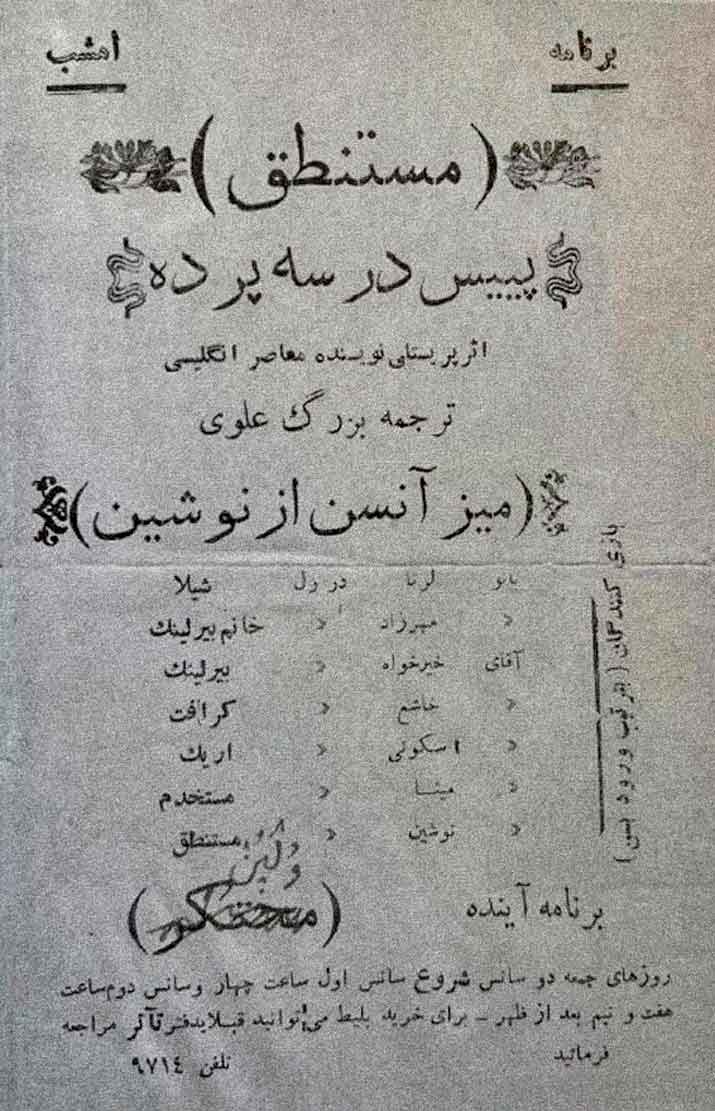 برنامه امشب
(مستنطق)
پییس در سه پرده
اثر پریستلی نویسنده معاصر انگلیسی
ترجمه بزرگ علوی
(میزآنسن از نوشین)
بازی کنندگان (بترتیب ورود بسن)
بانو لرتا در رل شیلا
« مهرزاد « خانم بیرلینك
آقای خیرخواه « بیرلینك
« خاشع « کرافت
« اسکوئی « اریك
« مینا « مستخدم
« نوشین « مستنطق
برنامه آینده (محتکر)
روزهای جمعه دو سانس شروع سانس اول ساعت چهار وسانس دوم ساعت
هفت و نیم بعد از ظهر ــ برای خرید بلیط می توانید قبلا بدفتر تآتر مراجعه
فرمائید تلفن ۹۷۱٤